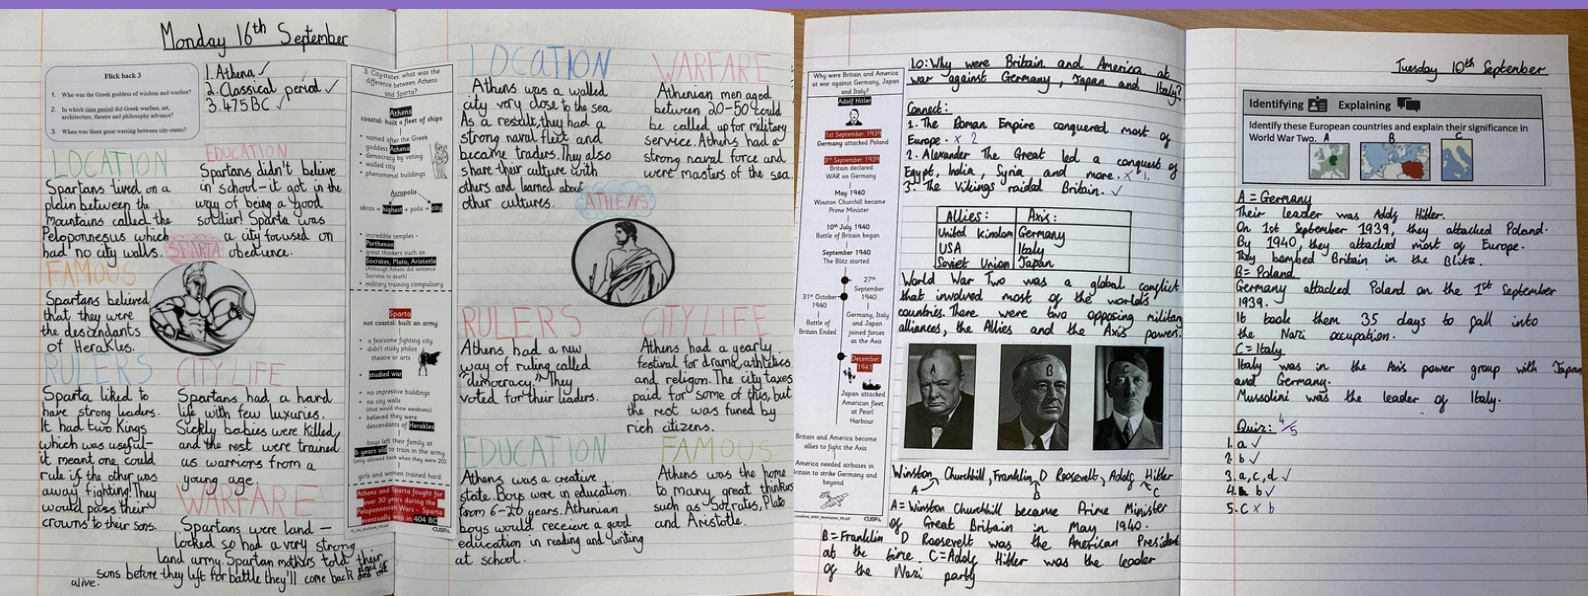 Monday 16th September
Flick back 3
1. Who was the Greek goddess of wisdom and warfare?
2. In which time period did Greek warfare, art,
architecture, theatre and philosophy advance?
3. When was there great warring between city-states?
1. Athena ✓
2. Classical period ✓
3. 475 BC ✓
LOCATION
Spartans lived on a
plain between the
mountains called the
Peloponnesus which
had no city walls.
EDUCATION
Spartans didn't believe
in school - it got in the
way of being a good
soldier! Sparta was
a city focused on
obedience.
SPARTA
FAMOUS
Spartans believed
that they were
the descendants
of Herakles.
RULERS
Sparta liked to
have strong leaders.
It had two Kings
which was useful-
it meant one could
rule if the other was
away fighting! They
would pass their
crowns to their sons.
CITY LIFE
Spartans had a hard
life with few luxuries.
Sickly babies were killed
and the rest were trained
as warriors from a
young age.
WARFARE
Spartans were land -
locked so had a very strong
land army. Spartan mothers told their
sons before they left for battle they'll come back
alive.
3. City-states: what was the
difference between Athens
and Sparta?
Athens
coastal: built a fleet of ships
• named after the Greek
goddess Athena
• democracy by voting
• walled city
• phenomenal buildings
Acropolis
akros = highest + polis = city
• incredible temples -
Parthenon
• great thinkers such as
Socrates, Plato, Aristotle
(Although Athens did sentence
Socrates to death)
• military training compulsory
Sparta
not coastal: built an army
• a fearsome fighting city
• didn't study philos
theatre or arts
• studied war
• no impressive buildings
• no city walls
(that would show weakness)
• believed they were
descendants of Herakles
boys left their family at
6 years old to train in the army
(only allowed back when they were 20)
girls and women trained hard
Athens and Sparta fought for
over 30 years during the
Peloponnesian Wars - Sparta
eventually won in 404 BC
CUSP
LOCATION
Athens was a walled
city very close to the sea.
As a result, they had a
strong naval fleet and
became traders. They also
share their culture with
others and learned about
other cultures.
WARFARE
Athenian men aged
between 20-50 could
be called up for military
service. Athens had a
strong naval force and
were masters of the sea.
ATHENS
RULERS
Athens had a new
way of ruling called
"democracy." They
voted for their leaders.
CITY LIFE
Athens had a yearly
festival for drama, athletics
and religon. The city taxes
paid for some of this, but
the rest was funed by
rich citizens.
EDUCATION
Athens was a creative
state. Boys were in education
from 6-20 years. Athenian
boys would receive a good
education in reading and writing
at school.
FAMOUS
Athens was the home
to many great thinkers
such as Socrates, Plato
and Aristotle.
Why were Britain and America
at war against Germany, Japan
and Italy?
Adolf Hitler
1st September 1939
Germany attacked Poland
3rd September 1939
Britain declared
WAR on Germany
May 1940
Winston Churchill became
Prime Minister
10th July 1940
Battle of Britain began
September 1940
The Blitz started
27th
September
1940
Germany, Italy
and Japan
joined forces
as the Axis
31st October
1940
Battle of
Britain Ended
December
1941
Japan attacked
American fleet
at Pearl
Harbour
Britain and America become
allies to fight the Axis
America needed airbases in
Britain to strike Germany and
beyond
CUSP
LO: Why were Britain and America at
war against Germany, Japan and Italy?
Connect:
1. The Roman Empire conquered most of
Europe. x 2
2. Alexander The Great led a conquest of
Egypt, India, Syria and more. x 1.
3. The Vikings raided Britain. ✓
Allies: Axis:
United Kingdom Germany
USA Italy
Soviet Union Japan
World War Two was a global conflict
that involved most of the worlds
countries. There were two opposing military
alliances, the Allies and the Axis powers.
A B C
Winston Churchill, Franklin D Roosevelt, Adolf Hitler
A B C
A = Winston Churchill became Prime Minister
of Great Britain in May 1940.
B = Franklin D Roosevelt was the American President
at the time. C = Adolf Hitler was the leader
of the Nazi party
Tuesday 10th September
Identifying Explaining
Identify these European countries and explain their significance in
World War Two.
A B C
A = Germany
Their leader was Adolf Hitler.
On 1st September 1939, they attacked Poland.
By 1940, they attacked most of Europe.
They bombed Britain in the Blitz.
B = Poland
Germany attacked Poland on the 1st September
1939.
It took them 35 days to fall into
the Nazi occupation.
C = Italy
Italy was in the Axis power group with Japan
and Germany.
Mussolini was the leader of Italy.
Quiz: 4/5
1. a ✓
2. b ✓
3. a, c, d ✓
4. b ✓
5. c x b